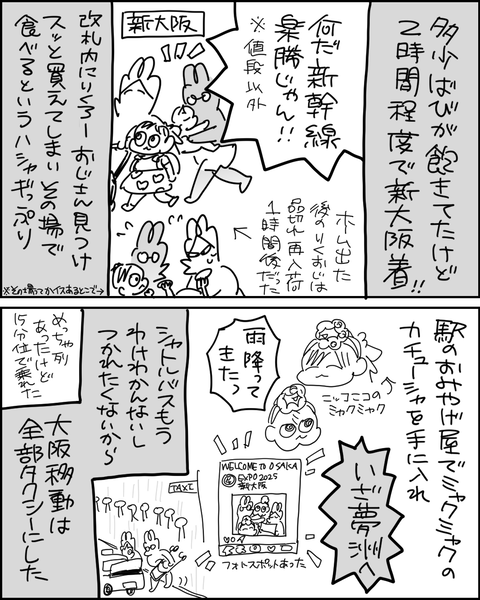 多少はびが飽きてたけど
2時間程度で新大阪着!!
何だ新幹線
楽勝じゃん!!
※値段以外
新大阪
ホーム出た
後のりくおじは
品切れ再入荷
1時間後だった
改札内にりくろーおじさん見つけ
スッと買えてしまいその場で
食べるというハシャギっぷり
※その場ってかイスあるとこで→
駅のおみやげ屋でミャクミャクの
カチューシャを手に入れ
ニッコニコの
ミャクミャク
いざ夢洲へ
雨降って
きたっ
WELCOME TO OSAKA
EXPO 2025
新大阪
フォトスポットあった
シャトルバスもう
わけわかんないし
つかれたくないから
TAXI
めっちゃ列
あったけど
15分位で乗れた
大阪移動は
全部タクシーにした